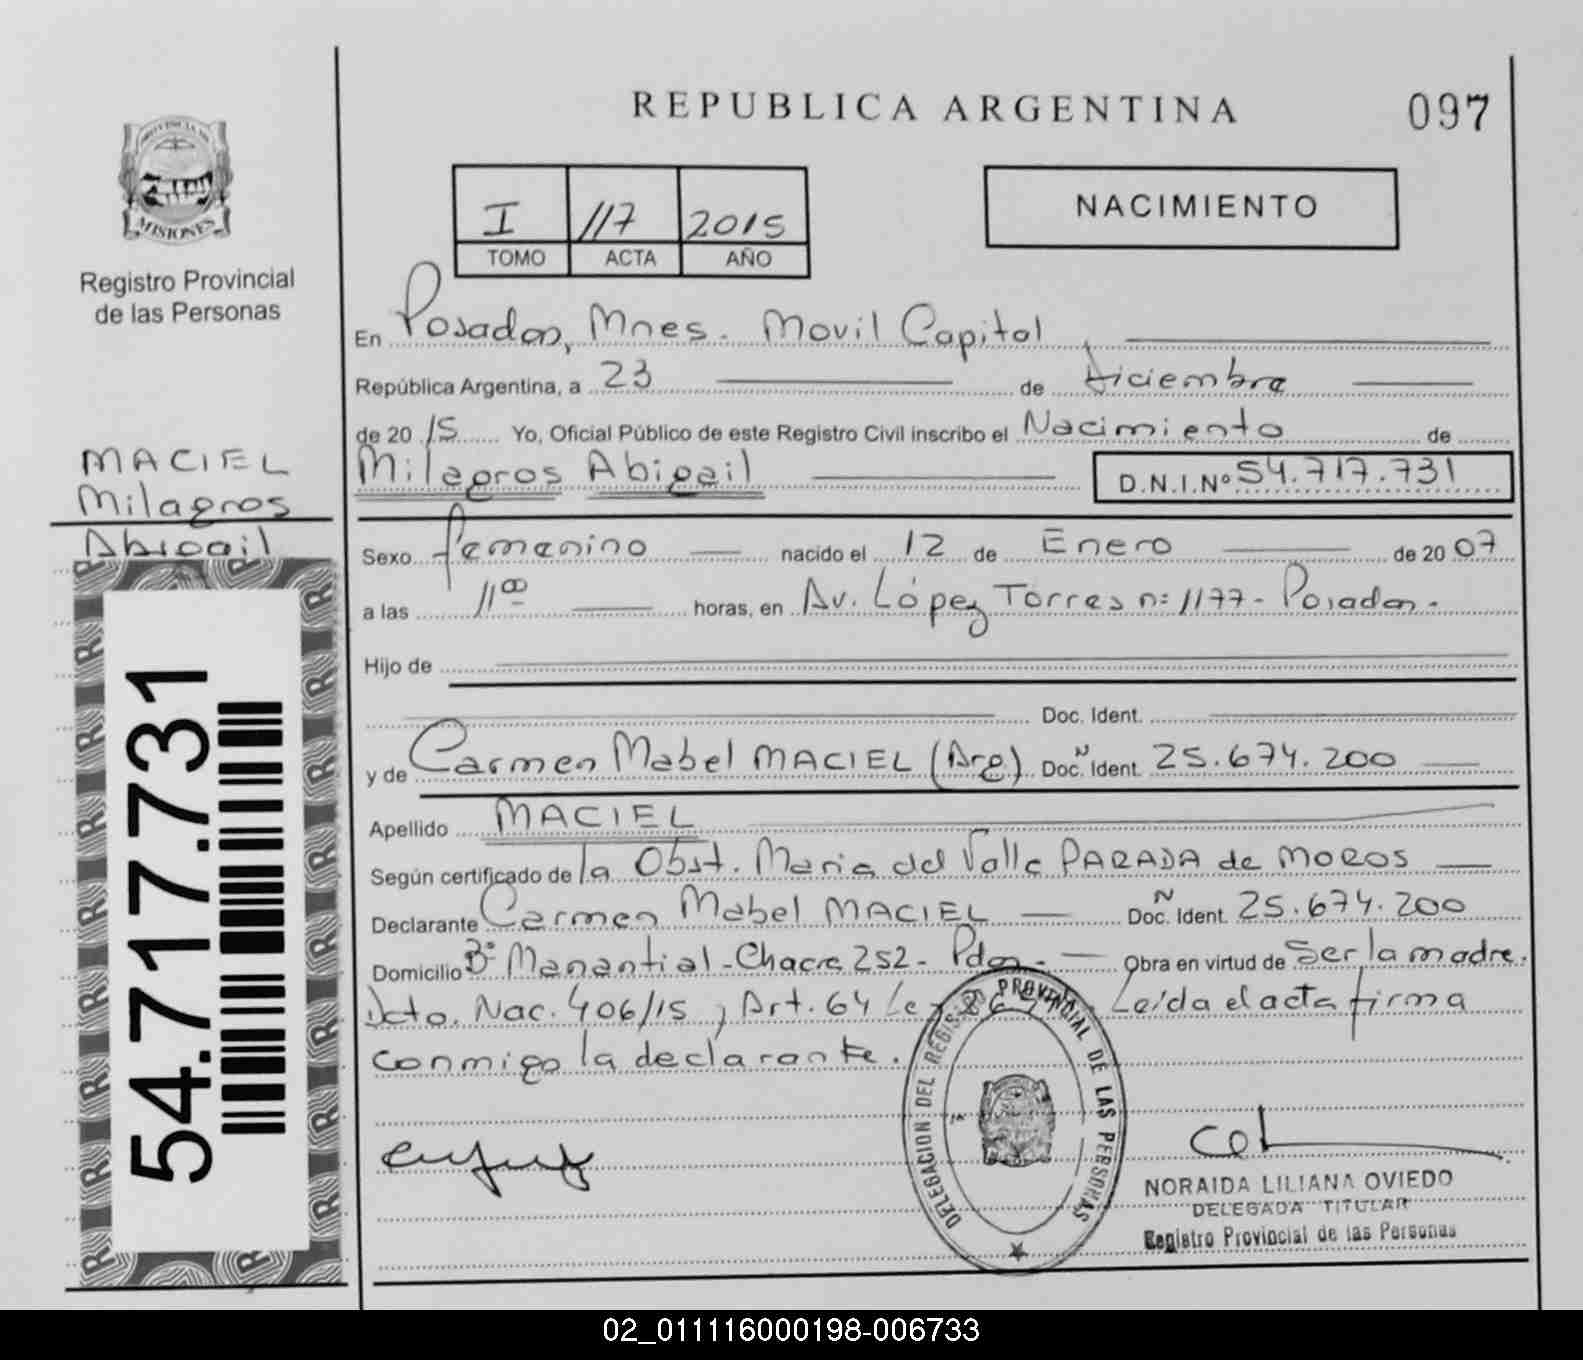 REPUBLICA ARGENTINA
097
PROVINCIA DE
MISIONES
Registro Provincial
de las Personas
I 117 2015
TOMO ACTA AÑO
NACIMIENTO
En Posadas, Mnes. Movil Capital
República Argentina, a 23 de Diciembre
de 20 15 Yo, Oficial Público de este Registro Civil inscribo el Nacimiento de
Milagros Abigail D.N.I.Nº 54.717.731
MACIEL
Milagros
Abigail
Sexo Femenino nacido el 12 de Enero de 20 07
a las 11 00 horas, en Av. López Torres n: 1177- Posadas.
Hijo de
Doc. Ident.
y de Carmen Mabel MACIEL (Arg) Doc. Ident. Ñ 25.674.200
Apellido MACIEL
Según certificado de la Obst. Maria del Valle PARADA de MOROS
Declarante Carmen Mabel MACIEL Doc. Ident. Ñ 25.674.200
Domicilio Bº Manantial - Chacra 252 - Pdas. Obra en virtud de Ser la madre.
Dcto. Nac. 406/15 y Art. 64 Leida el acta firma
conmigo la declarante.
54.717.731
DELEGACION DEL REGISTRO PROVINCIAL DE LAS PERSONAS
NORAIDA LILIANA OVIEDO
DELEGADA TITULAR
Registro Provincial de las Personas
02_011116000198-006733